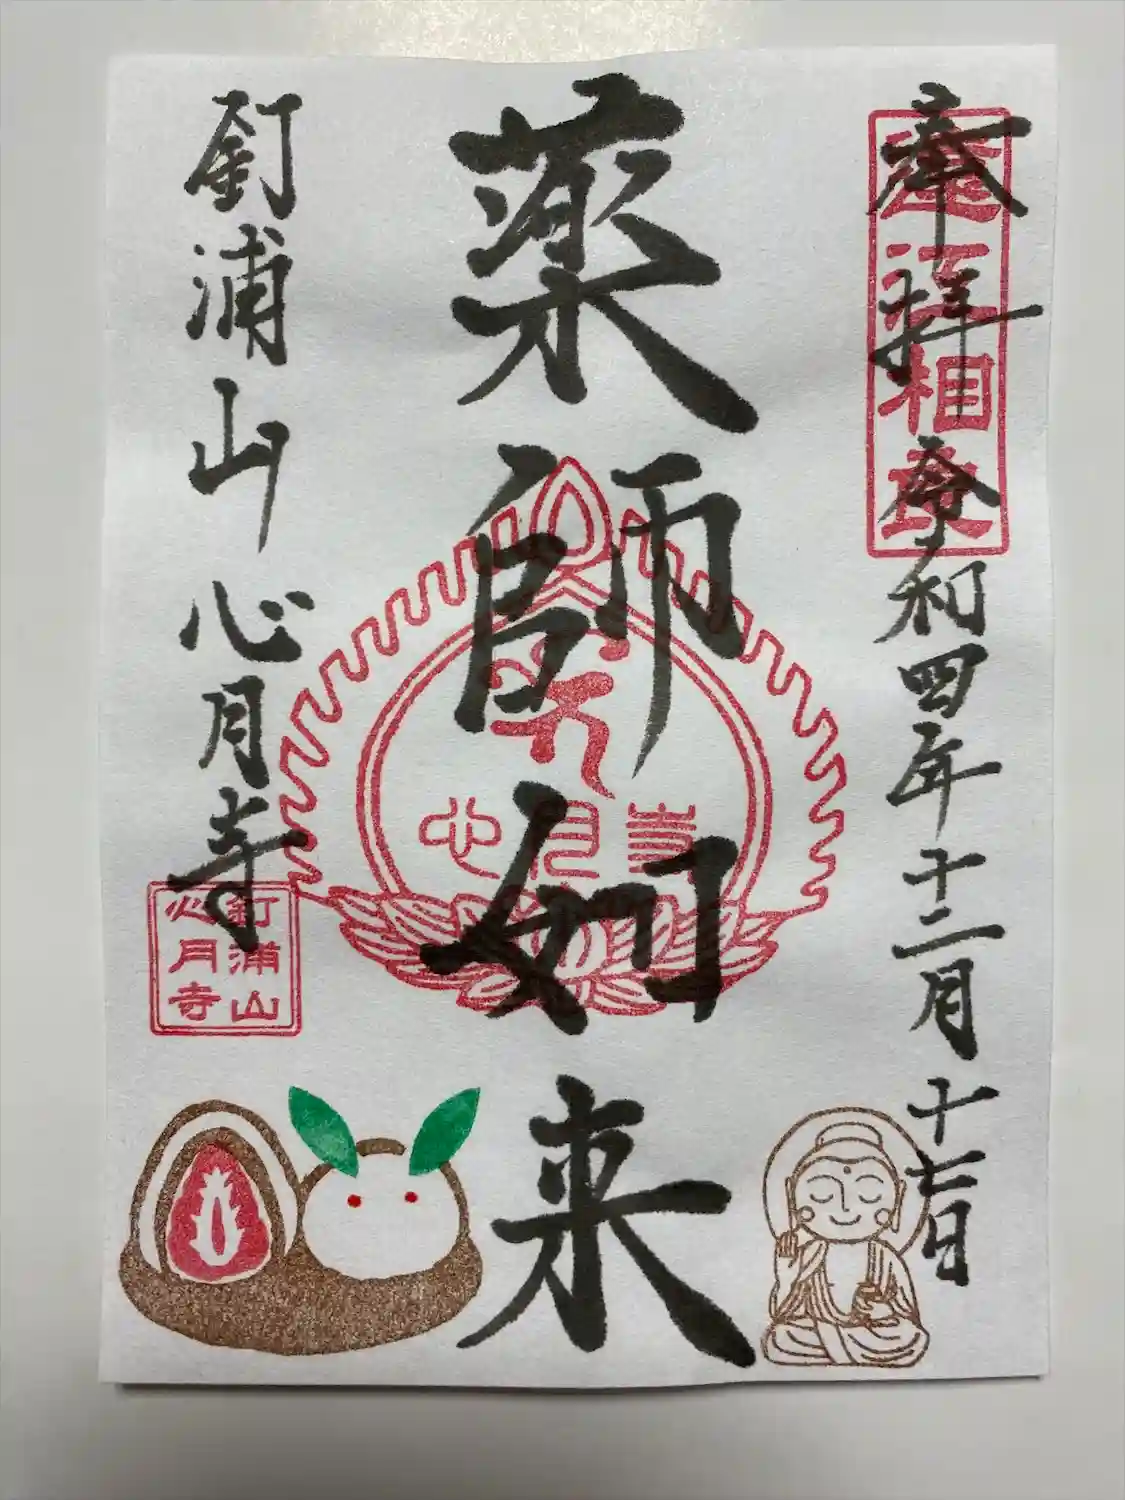 奉拝 令和四年十二月十七日
遠江相良
薬師如来
心月寺
釘浦山 心月寺
釘浦山
心月寺